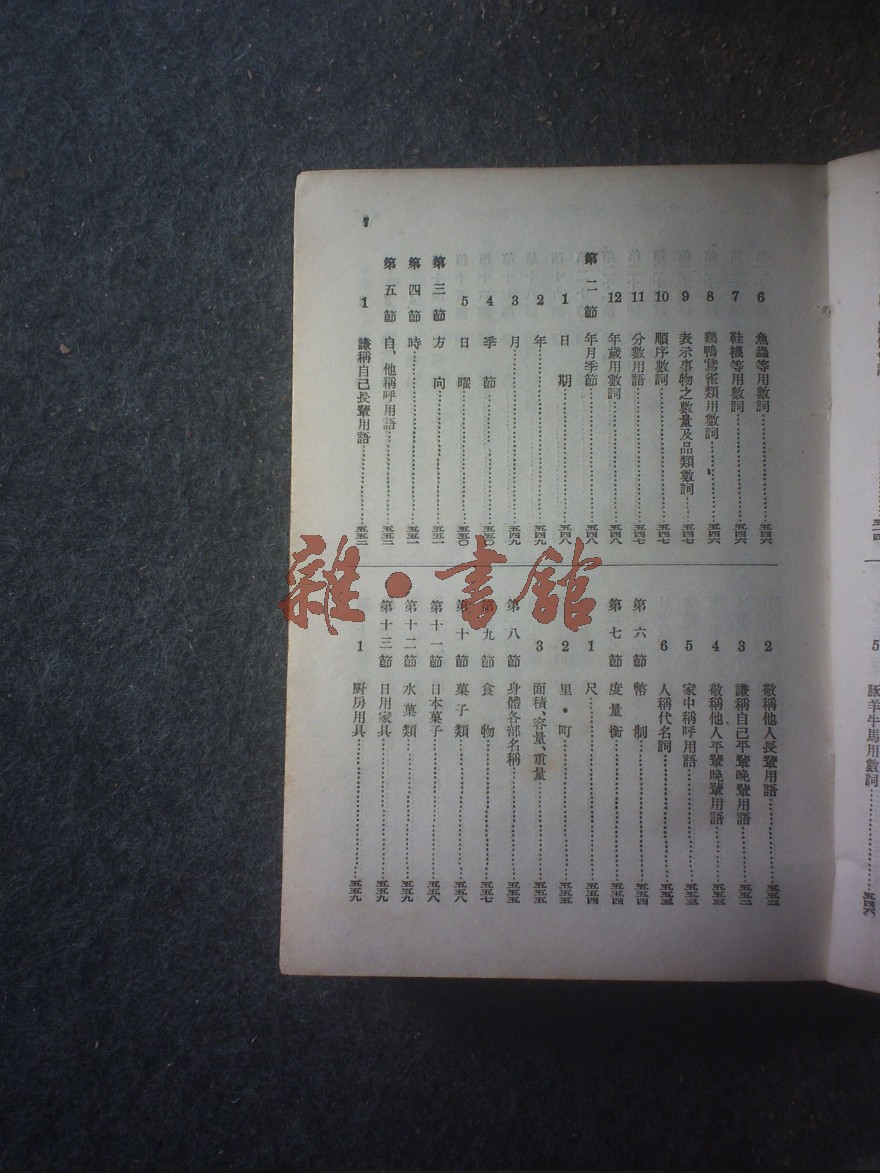 7
6 魚蟲等用數詞……五四六
7 鞋襪等用數詞……五四六
8 鷄鴨鵞雀類用數詞……五四六
9 表示事物之數量及品類數詞……五四七
10 順序數詞……五四七
11 分數用語……五四七
12 年歲用數詞……五四八
第二節 年月季節……五四八
1 日期……五四八
2 年……五四九
3 月……五四九
4 季節……五五〇
5 日曜……五五〇
第三節 方向……五五一
第四節 時……五五一
第五節 自、他稱呼用語……五五二
1 謙稱自己長輩用語……五五二
2 敬稱他人長輩用語……五五二
3 謙稱自己平輩晚輩用語……五五二
4 敬稱他人平輩晚輩用語……五五三
5 家中稱呼用語……五五三
6 人稱代名詞……五五三
第六節 幣制……五五四
第七節 度量衡……五五四
1 尺……五五四
2 里・町……五五五
3 面積、容量、重量……五五五
第八節 身體各部名稱……五五五
第九節 食物……五五七
第十節 菓子類……五五八
第十一節 日本菓子……五五八
第十二節 水菓類……五五九
第十三節 日用家具……五五九
1 厨房用具……五五九
5 豚羊牛馬用數詞……五四六
雜・書館